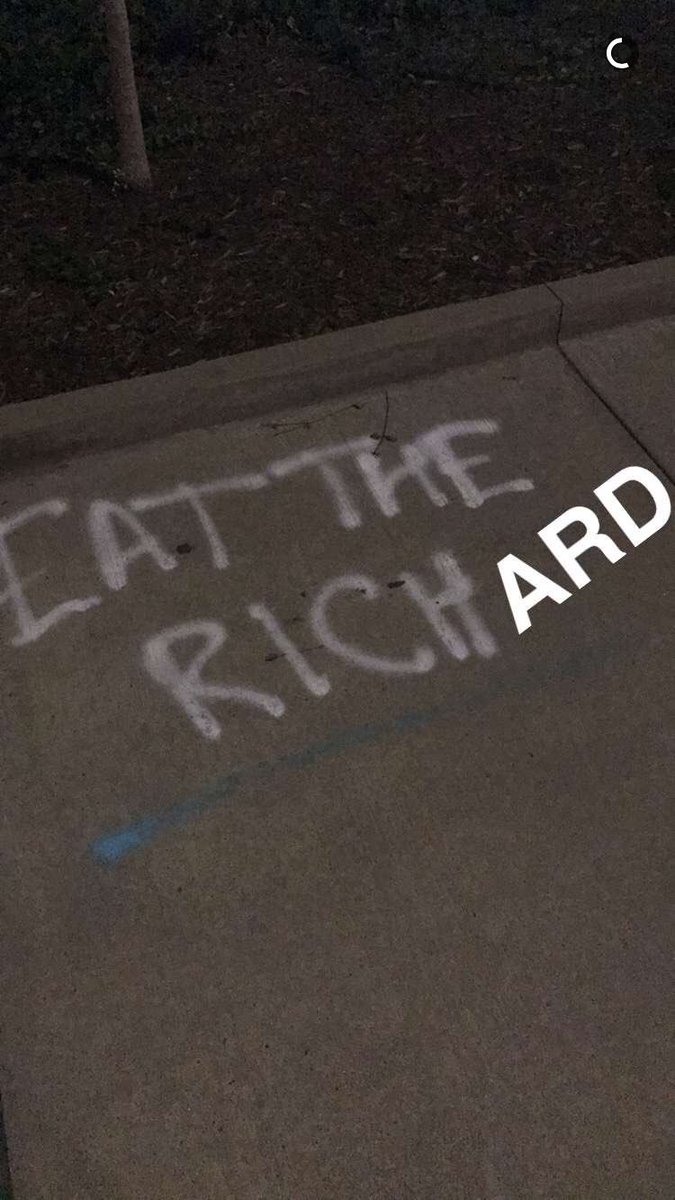 EAT THE
RICHARD